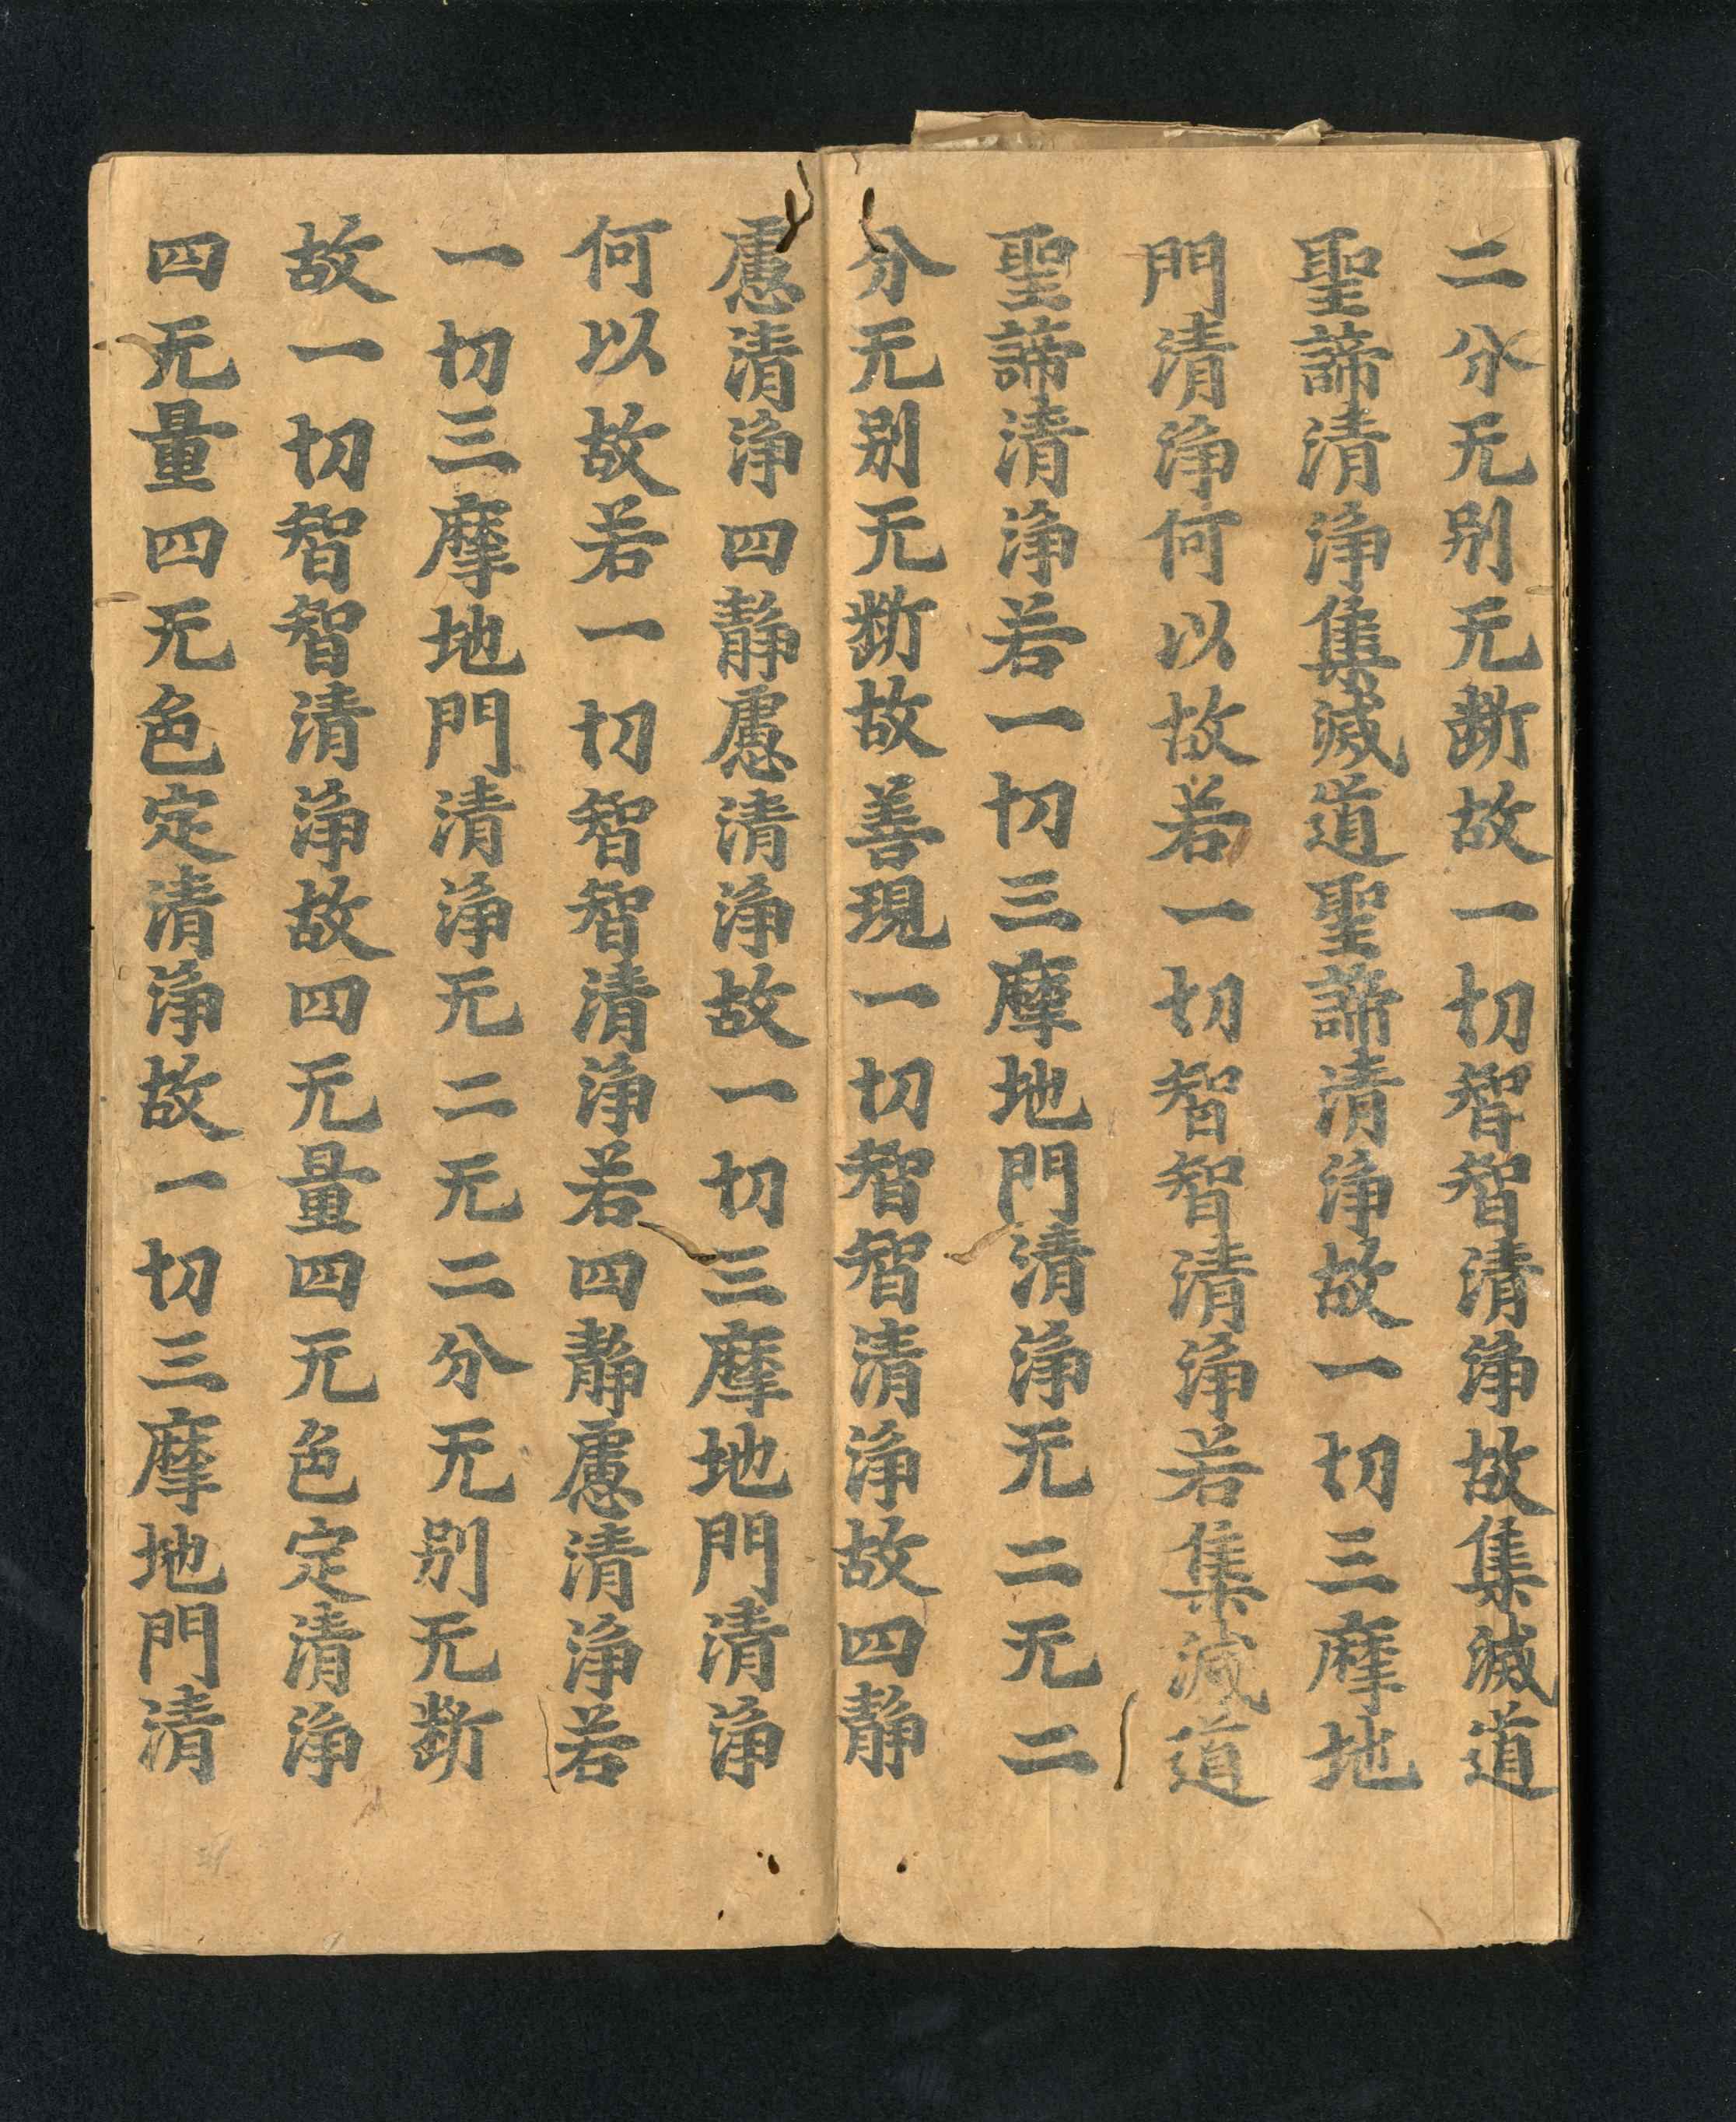 二分无别无断故一切智智清淨故集滅道
聖諦清淨集滅道聖諦清淨故一切三摩地
門清淨何以故若一切智智清淨若集滅道
聖諦清淨若一切三摩地門清淨无二无二
分无别无断故善現一切智智清淨故四靜
慮清淨四靜慮清淨故一切三摩地門清淨
何以故若一切智智清淨若四靜慮清淨若
一切三摩地門清淨无二无二分无别无断
故一切智智清淨故四无量四无色定清淨
四无量四无色定清淨故一切三摩地門清